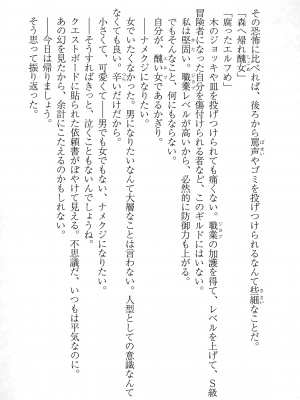 その恐怖に比べれば、後ろから罵声やゴミを投げつけられるなんて些細なことだ。
「森へ帰れ醜女」
「腐ったエルフめ」
木のジョッキや皿を投げつけられても痛くない。職業の加護を得て、レベルを上げて、S級
冒険者になった自分を傷付けられる者など、このギルドにはいない。
私は堅固い。職業レベルが高いから、必然的に防御力も上がる。
でもそんなこと、何にもならない。
自分が、醜い女であるかぎり。
――ナメクジになりたい。
女でいたくなかった。男になりたいなんて大層なことは言わない。人型としての意識なんて
なくても良い。辛いだけだから。
小さくて、可愛くて――男でも女でもない、ナメクジになりたい。
――そうすればきっと、泣くこともないんでしょうね。
クエストボードに貼られた依頼書がぼやけて見える。不思議だ、いつもは平気なのに。
あの幻を見たから、余計にこたえるのかもしれない。
――今日は帰りましょう。
そう思って振り返った。